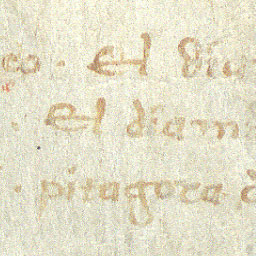 ço · El dia
· El diam
· pitagora d